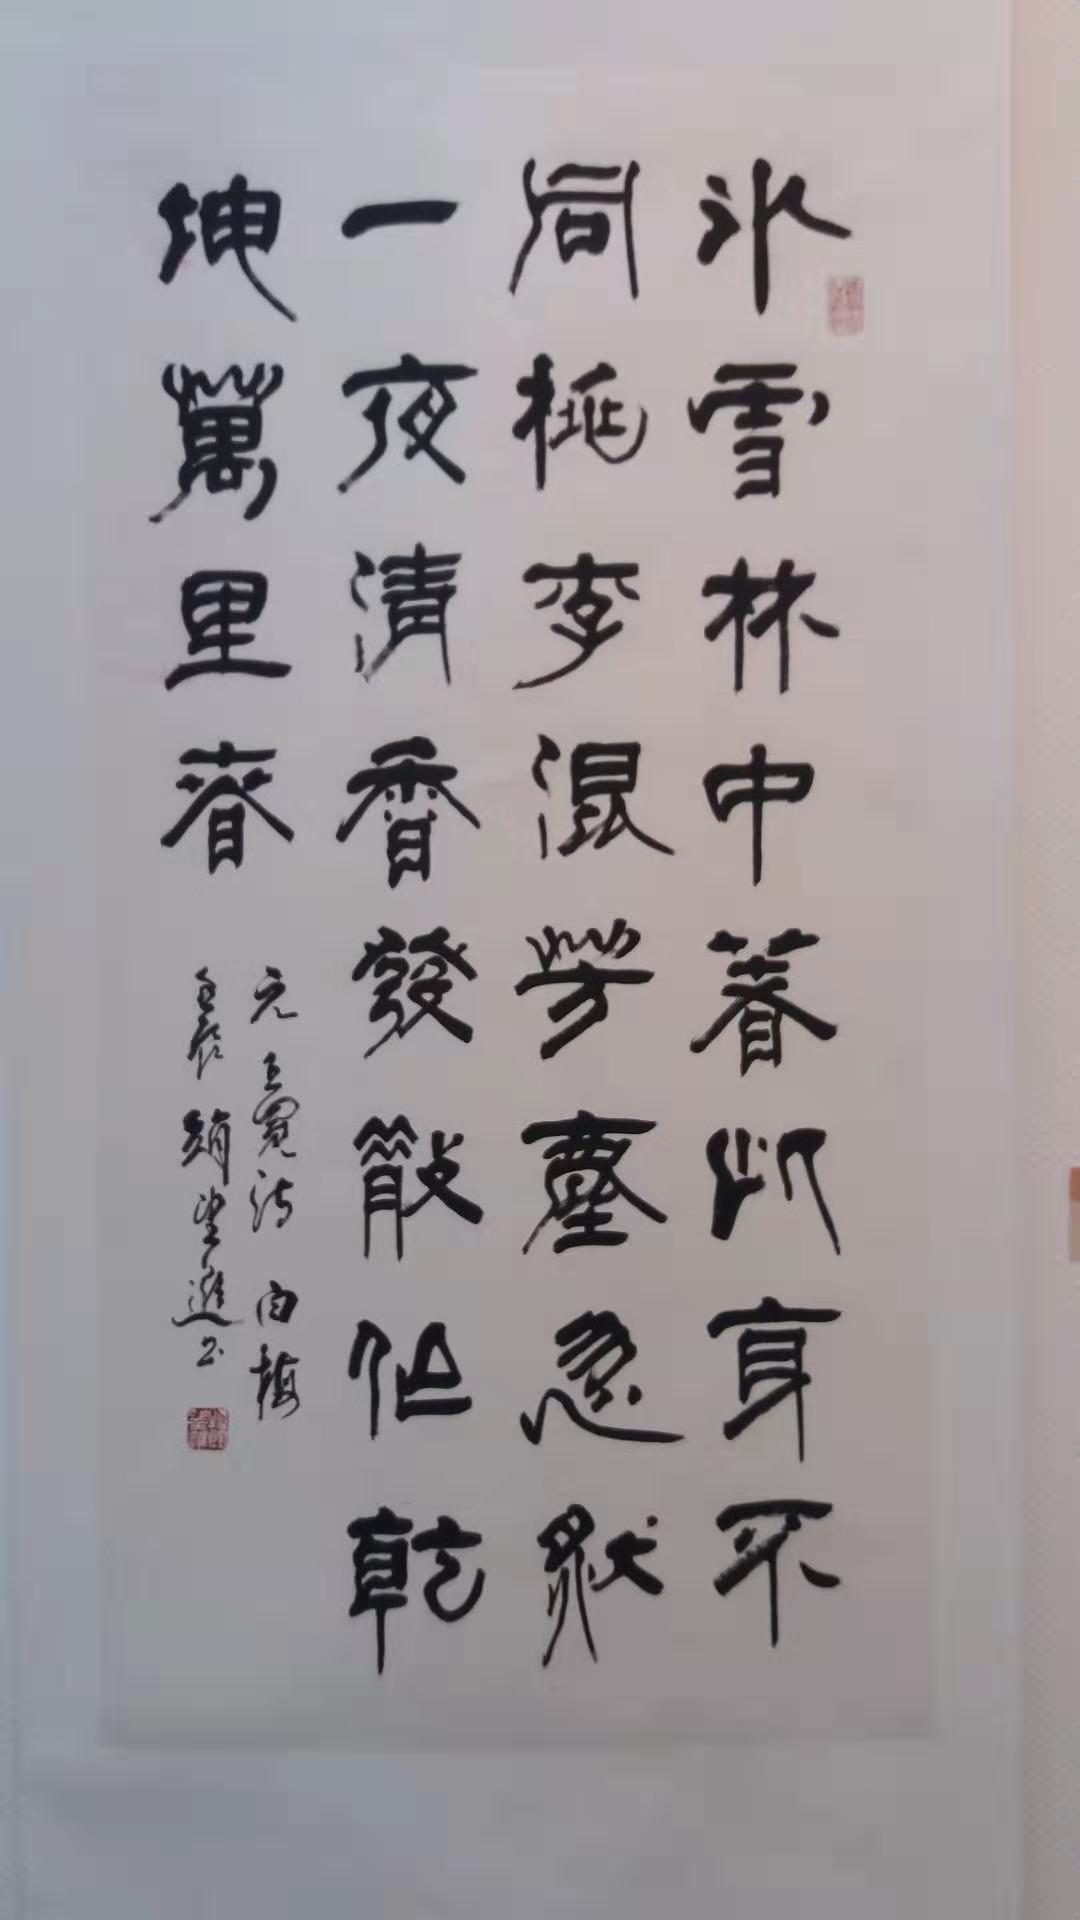 冰雪林中著此身不
同桃李混芳塵忽然
一夜清香發散作乾
坤萬里春
元王冕詩白梅
趙望進书